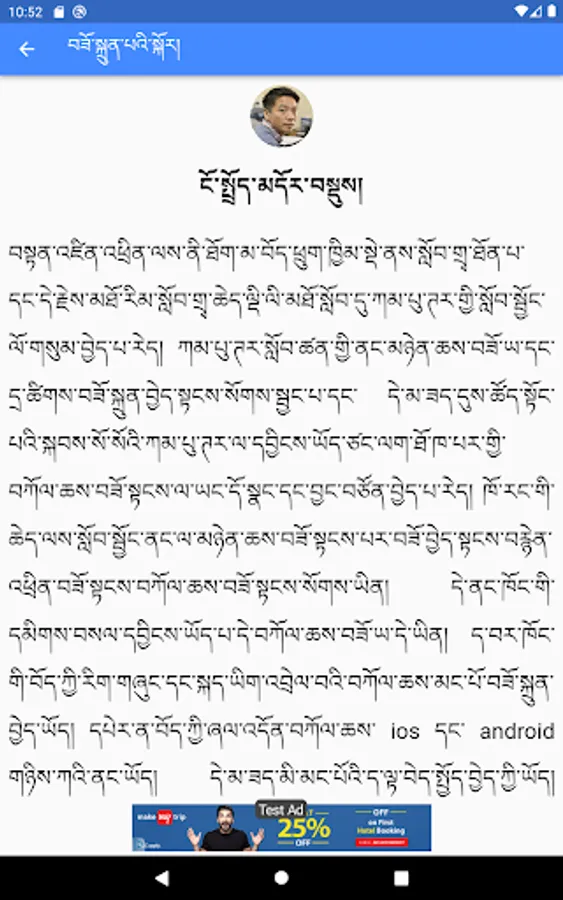 10:52
བཟོ་སྐྲུན་པའི་སྐོར།
ངོ་སྤྲོད་མདོར་བསྡུས།
བསྟན་འཛིན་འཕྲིན་ལས་ནི་ཐོག་མ་བོད་ཕྲུག་ཁྱིམ་སྡེ་ནས་སློབ་གྲྭ་ཐོན་པ་
དང་དེ་རྗེས་མཐོ་རིམ་སློབ་གྲྭ་ཆེད་ལྡི་ལི་མཐོ་སློབ་དུ་ཀམ་པུ་ཊར་གྱི་སློབ་སྦྱོང་
ལོ་གསུམ་བྱེད་པ་རེད། ཀམ་པུ་ཊར་སློབ་ཚན་གྱི་ནང་མཉེན་ཆས་བཟོ་ཡ་དང་
དྲ་ཚིགས་བཟོ་སྐྲུན་བྱེད་སྟངས་སོགས་སྦྱང་པ་དང་ དེ་མ་ཟད་དུས་ཚོད་སྟོང་
པའི་སྐབས་སོ་སོའི་ཀམ་པུ་ཊར་ལ་དབྱིངས་ཡོད་ཙང་ལག་ཐོ་ཁ་པར་གྱི་
བཀོལ་ཆས་བཟོ་སྟངས་ལ་ཡང་དོ་སྣང་དང་བྱང་བཙོན་བྱེད་པ་རེད། ཁོ་རང་གི་
ཆེད་ལས་སློབ་སྦྱོང་ནང་ལ་མཉེན་ཆས་བཟོ་སྟངས་པར་བཟོ་བྱེད་སྟངས་བརྙེན་
འཕྲིན་བཟོ་སྟངས་བཀོལ་ཆས་བཟོ་སྟངས་སོགས་ཡིན། དེ་ནང་ཁོང་གི་
དམིགས་བསལ་དབྱིངས་ཡོད་པ་དེ་བཀོལ་ཆས་བཟོ་ཡ་དེ་ཡིན། ད་བར་ཁོང་
གི་བོད་ཀྱི་རིག་གཞུང་དང་སྐད་ཡིག་འབྲེལ་བའི་བཀོལ་ཆས་མང་པོ་བཟོ་སྐྲུན་
བྱེད་ཡོད། དཔེར་ན་བོད་ཀྱི་ཞལ་འདོན་བཀོལ་ཆས་ ios དང་ android
གཉིས་ཀའི་ནང་ཡོད། དེ་མ་ཟད་མི་མང་པོའི་ད་ལྟ་བེད་སྤྱོད་བྱེད་ཀྱི་ཡོད།
make my trip
Test Ad
25%
OFF
OFF
on First
Hotel Booking